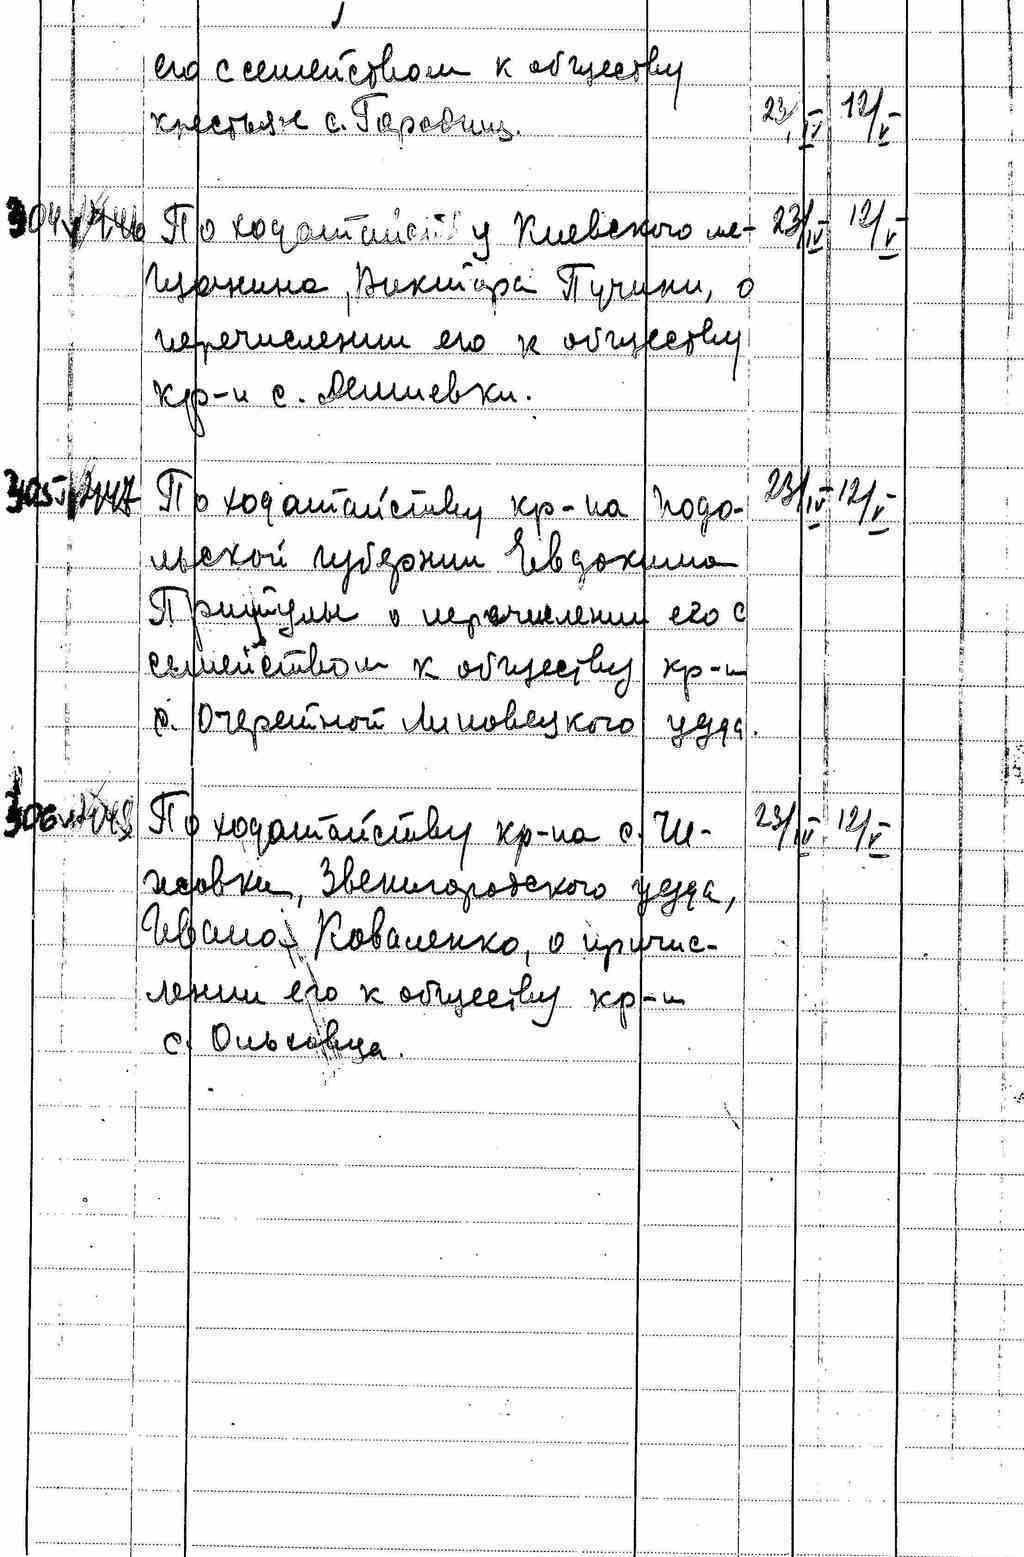 его с семейством к обществу
крестьян с. Горовиц. 23/IV 12/V
304 По ходатайству Киевского ме- 23/IV 12/V
щанина, Виктора Пучини, о
перечислении его к обществу
кр-н с. Лешиевки.
305 По ходатайству кр-на Подо- 23/IV 12/V
льской губернии Евдокима
Притулы о перечислении его с
семейством к обществу кр-н
с. Очеретной Липовецкого уезда.
306 По ходатайству кр-на с. Чи- 23/IV 12/V
жовки, Звенигородского уезда,
Ивана Коваленко, о причис-
лении его к обществу кр-н
с. Ольховца.